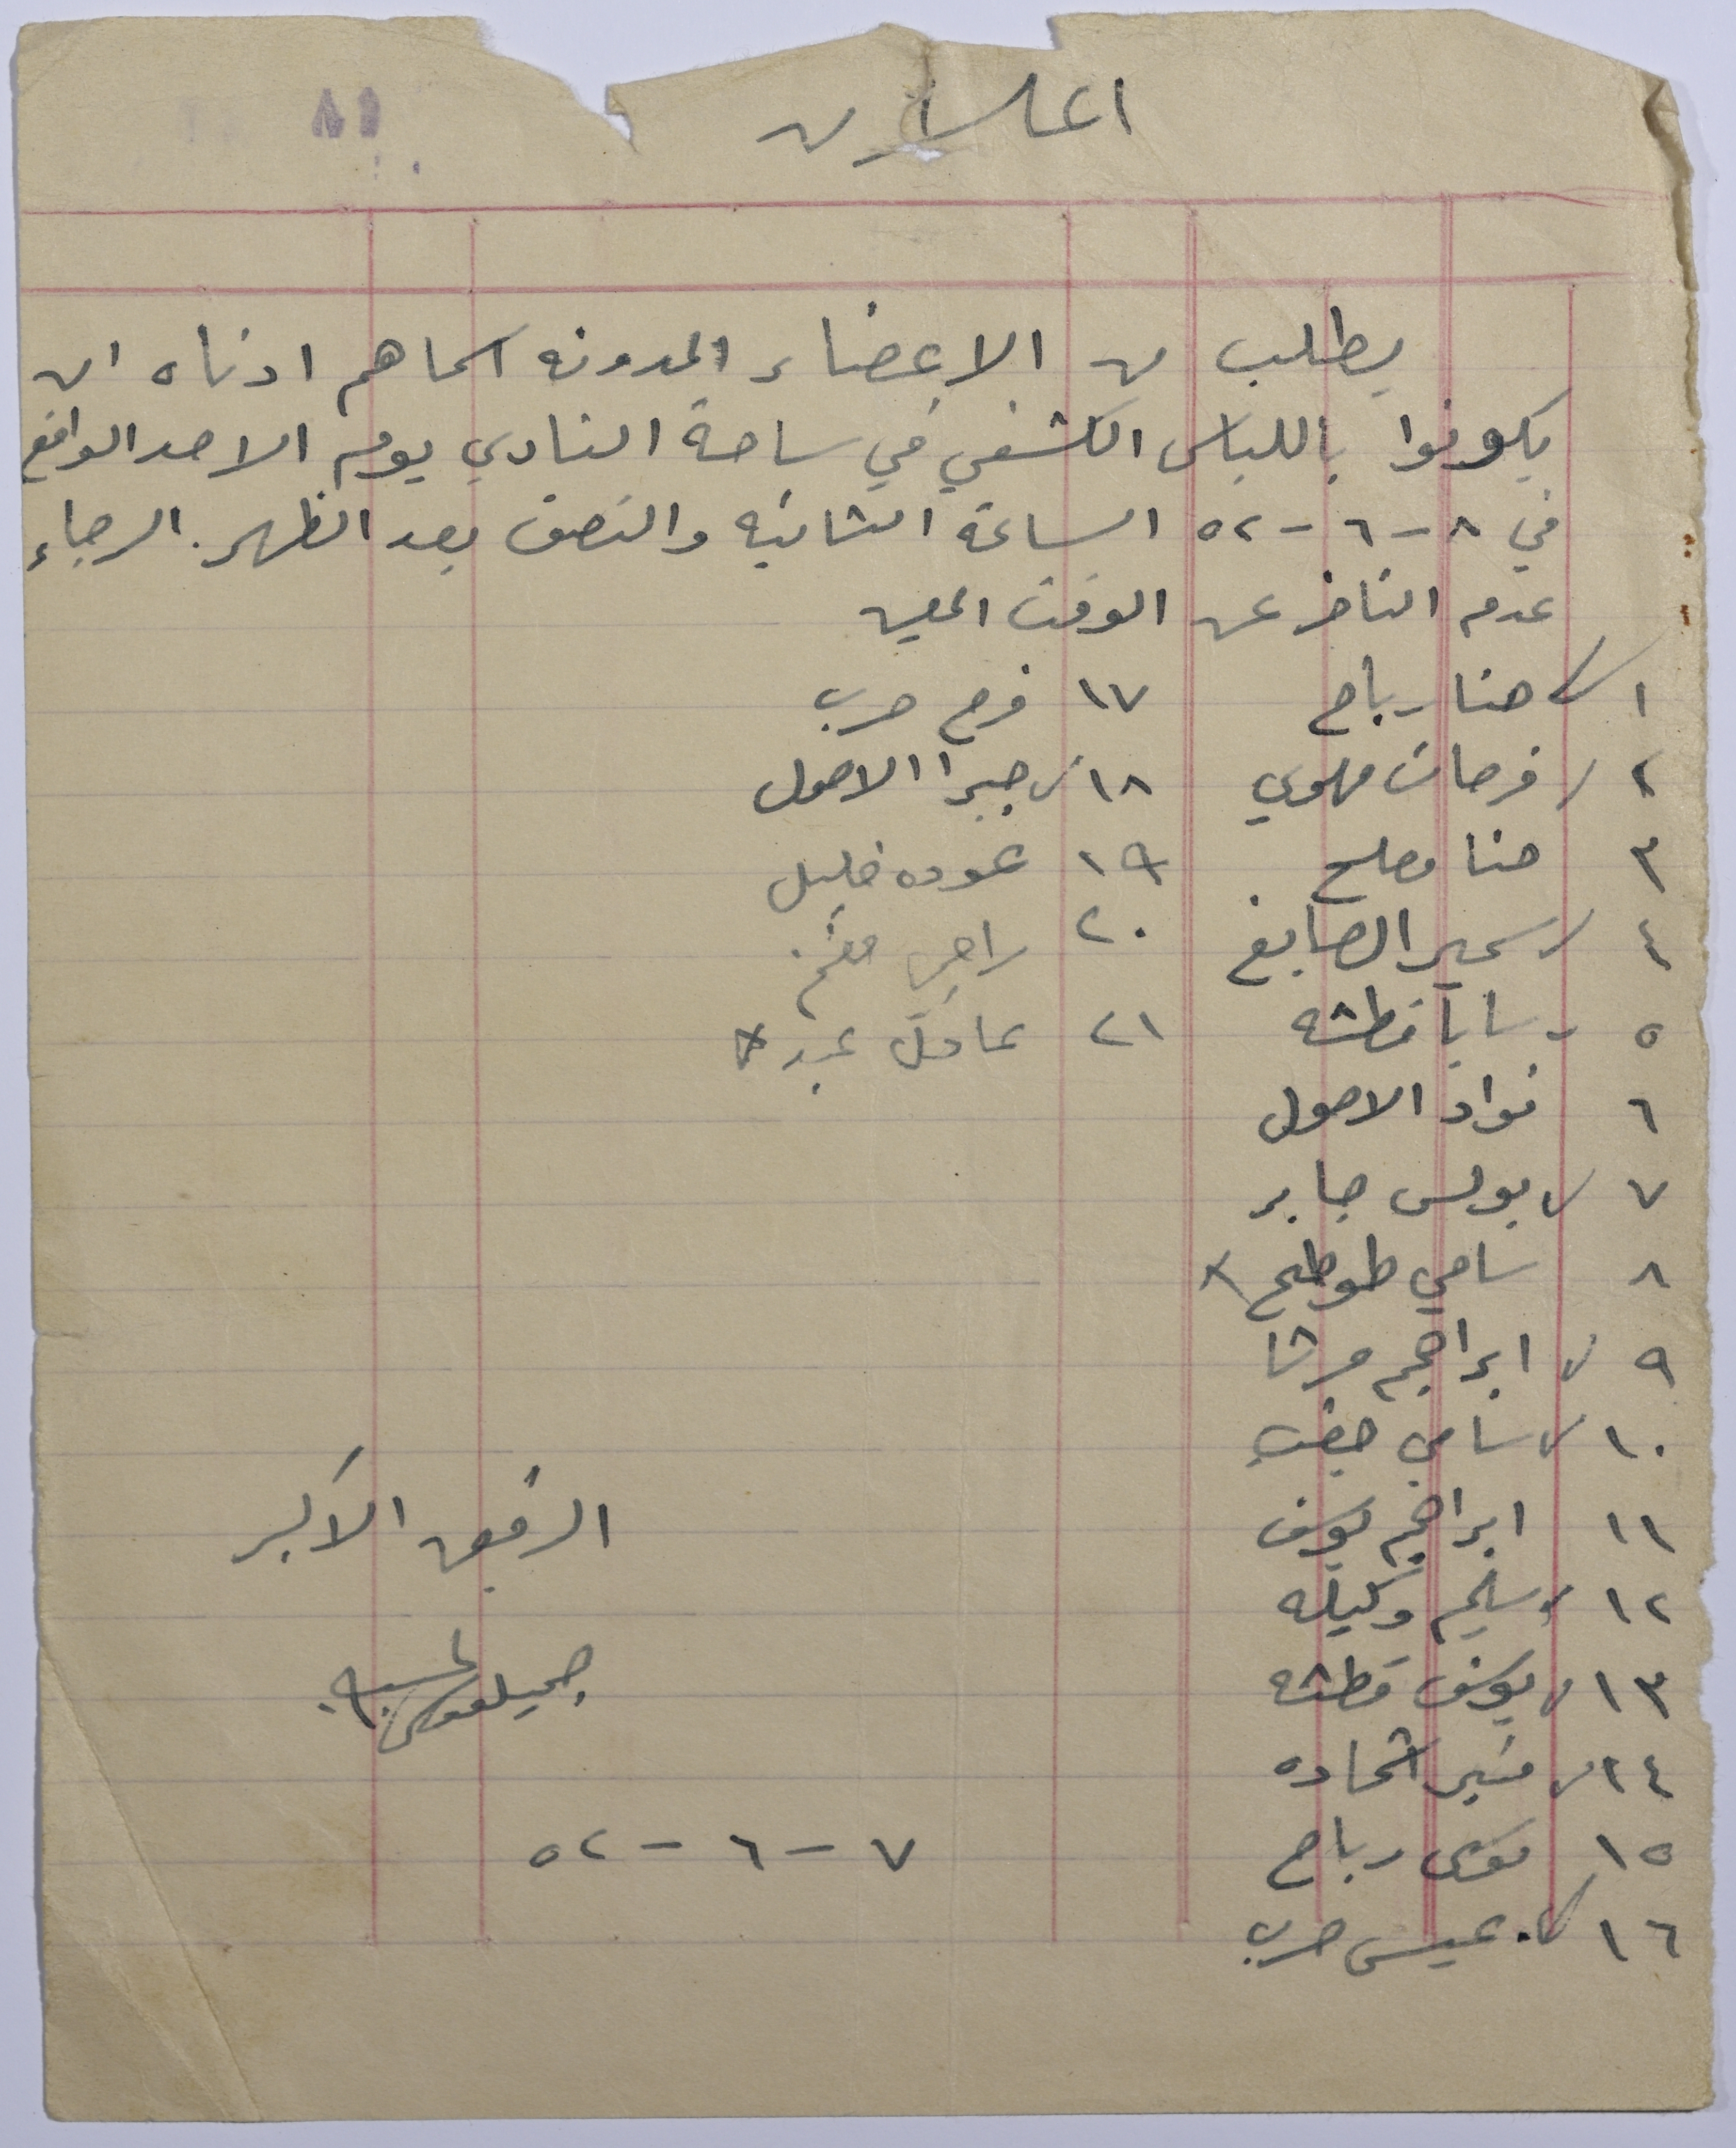 اعلان
٨١
يطلب من الاعضاء المدونه اسماهم ادناه ان
يكونوا باللباس الكشفي في ساحة النادي يوم الاحد الواقع
في ٨-٦-٥٢ الساعة الثانيه والنصف بعد الظهر. الرجاء
عدم التاخر عن الوقت المعين
١ حنا رباح
٢ فرحات مهوي
٣ حنا مصلح
٤ سمير الصايغ
٥ سابا قطشه
٦ فواد الاحول
٧ بولس جابر
٨ سامي طوطح
٩ ابراهيم مرشا
١٠ سامي
١١ ابراهيم يوسف
١٢ سليم وكيله
١٣ يوسف قطشه
١٤ منير شحاده
١٥ موسى رباح
١٦ عيسى حرب
١٧ فرح حرب
١٨ جبرا الاحول
١٩ عوده خليل
٢٠ راجي مغنم
٢١ عادل عبد
الرفيق الاكبر
جميل موسى
٧-٦-٥٢